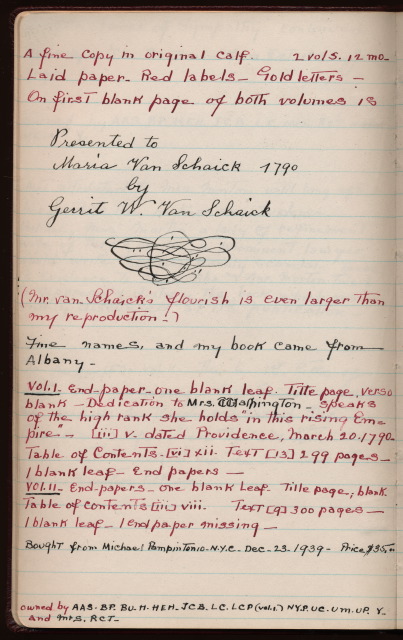 A fine copy in original calf. 2 vols. 12 mo.
Laid paper - Red labels - Gold letters -
On first blank page of both volumes is
Presented to
Maria Van Schaick 1790
by
Gerrit W. Van Schaick
(Mr. van Schaick's flourish is even larger than
my reproduction!)
Fine names, and my book came from
Albany -
Vol. I. End-paper - one blank leaf. Title page, verso
blank - Dedication to Mrs. Washington - speaks
of the high rank she holds "in this rising Em-
pire" - [iii] v. dated Providence, March 20. 1790 -
Table of Contents - [vi] xii. Text [13] 299 pages -
1 blank leaf - End papers -
Vol. II. - End-papers - One blank leaf - Title page, blank
Table of contents [iii] viii. Text [9] 300 pages -
1 blank leaf - 1 end paper missing -
Bought from Michael Papantonio - N.Y.C. Dec - 23 - 1939 - Price $35.
owned by AAS. BP. BU. H. HEH. JCB. LC. LCP (vol. 1) NYP. UC. UM. UP. Y.
and Mrs. RCT.